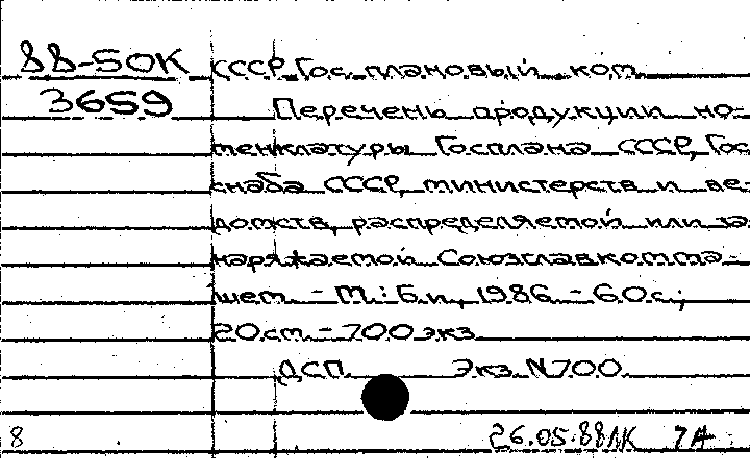 88-50К
3659
СССР. Гос. плановый ком.
Перечень продукции но-
менклатуры Госплана СССР, Гос
снаба СССР, министерств и ве-
домств, распределяемой или за-
наряжаемой Союзглавкоммa-
шем. - М.: Б.и., 1986. - 60 с.;
20 см. - 700 экз.
ДСП. Экз. N700.
8 26.05.88 ЛК 7А